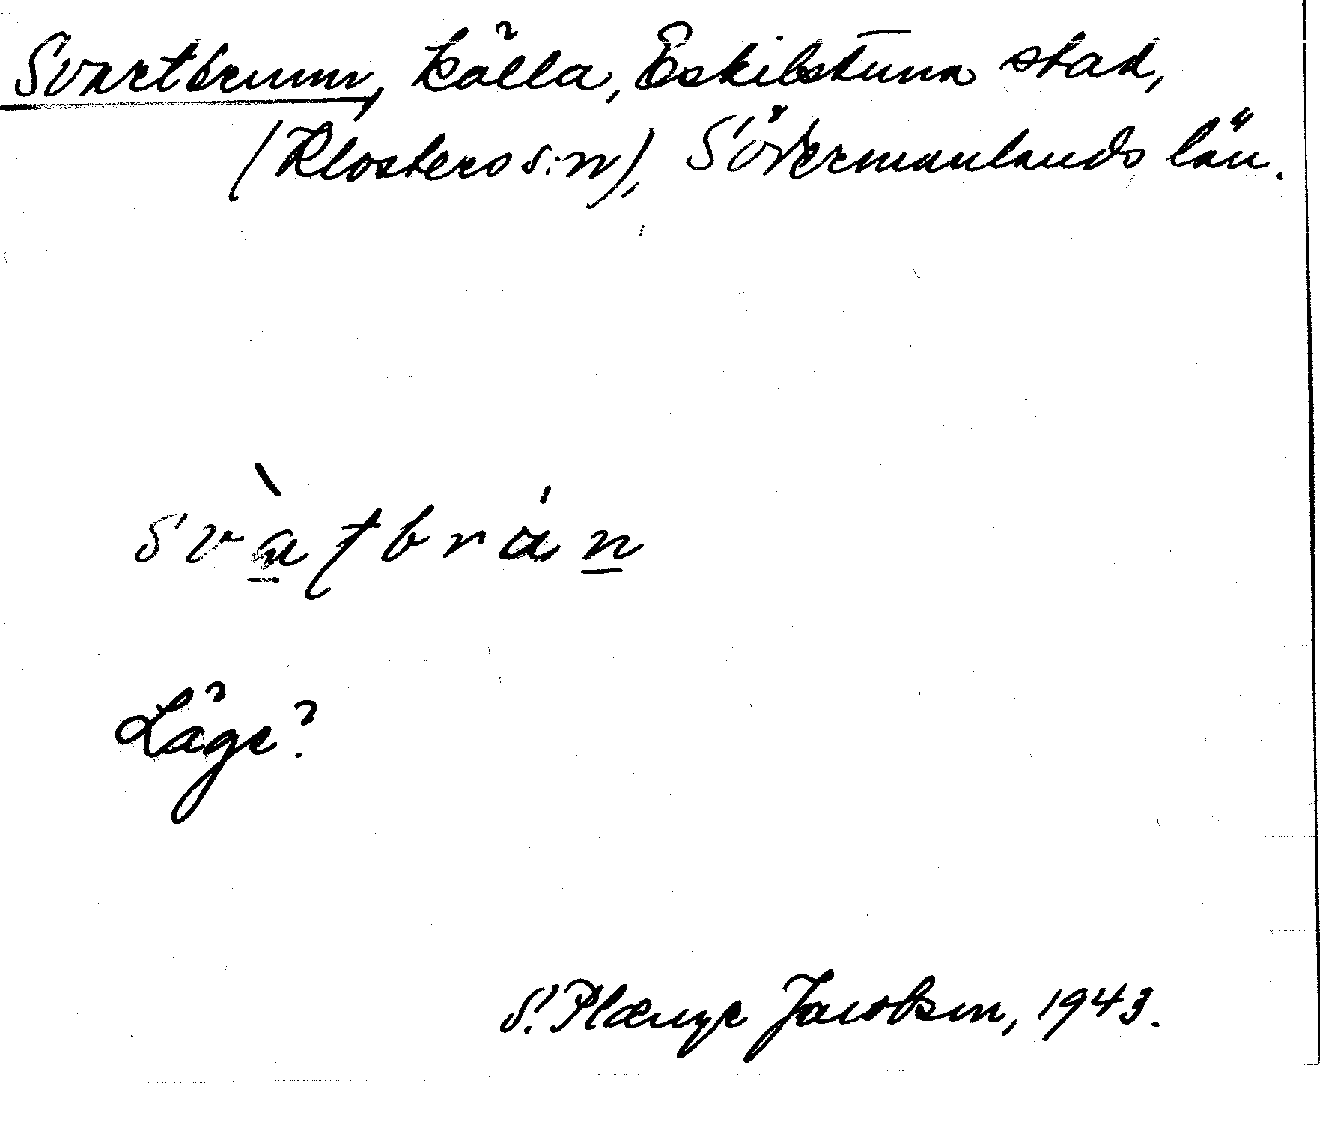 Svartbrunn, källa, Eskilstuna stad,
(Klosters s:n), Södermanlands län.
svàtbrán
Läge?
S. Plænge Jacobson, 1943.